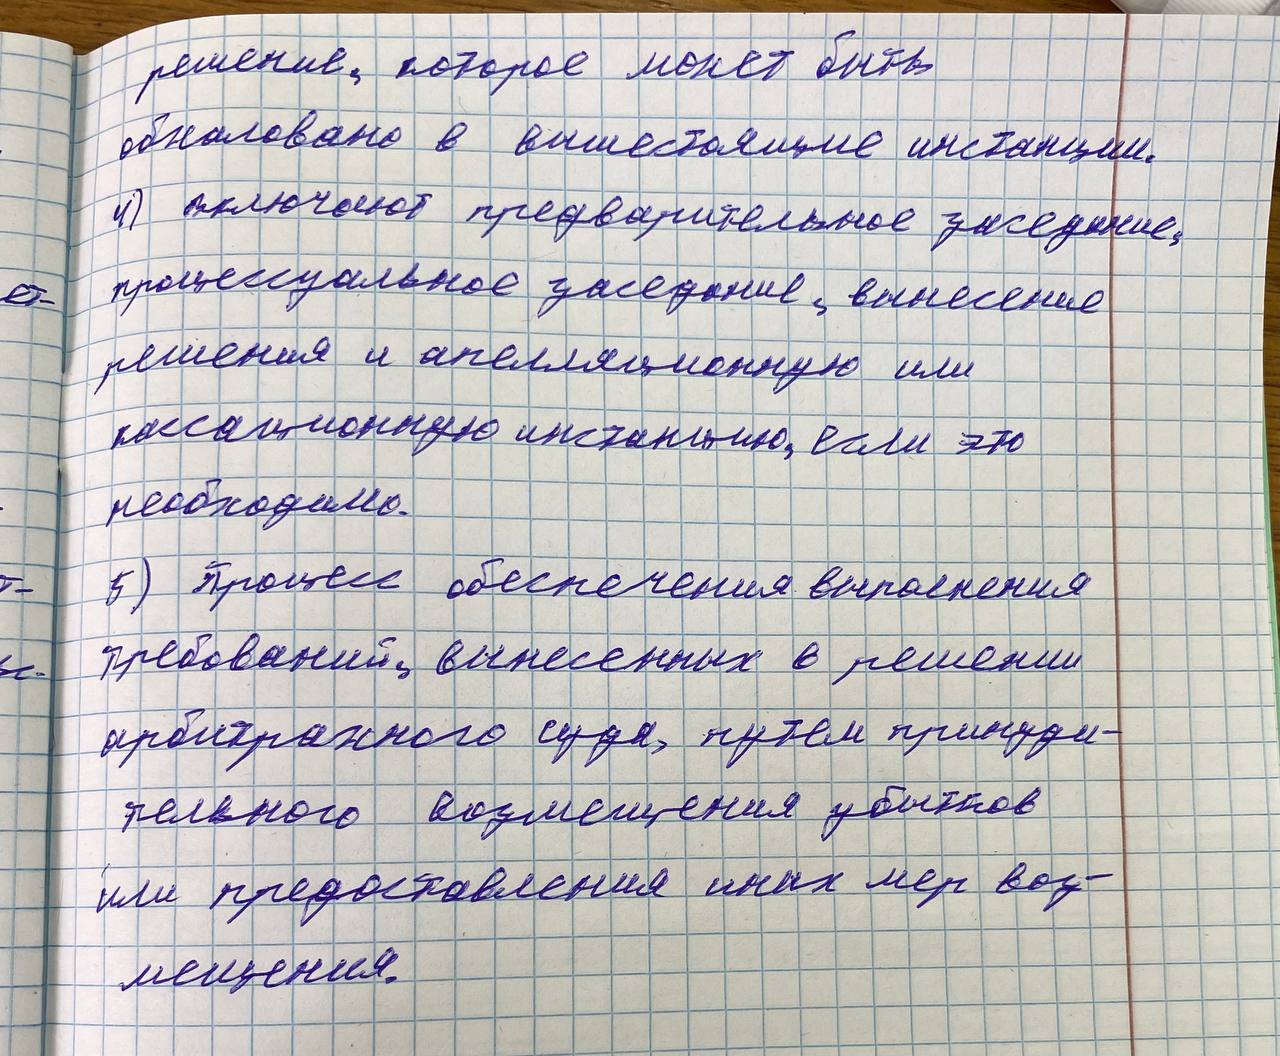 решение, которое может быть
обжаловано в вышестоящие инстанции.
4) включают предварительное заседание,
процессуальное заседание, вынесение
решения и апелляционную или
кассационную инстанцию, если это
необходимо.
5) Процесс обеспечения выполнения
требований, вынесенных в решении
арбитражного суда, путем принуди-
тельного возмещения убытков
или предоставления иных мер воз-
мещения.